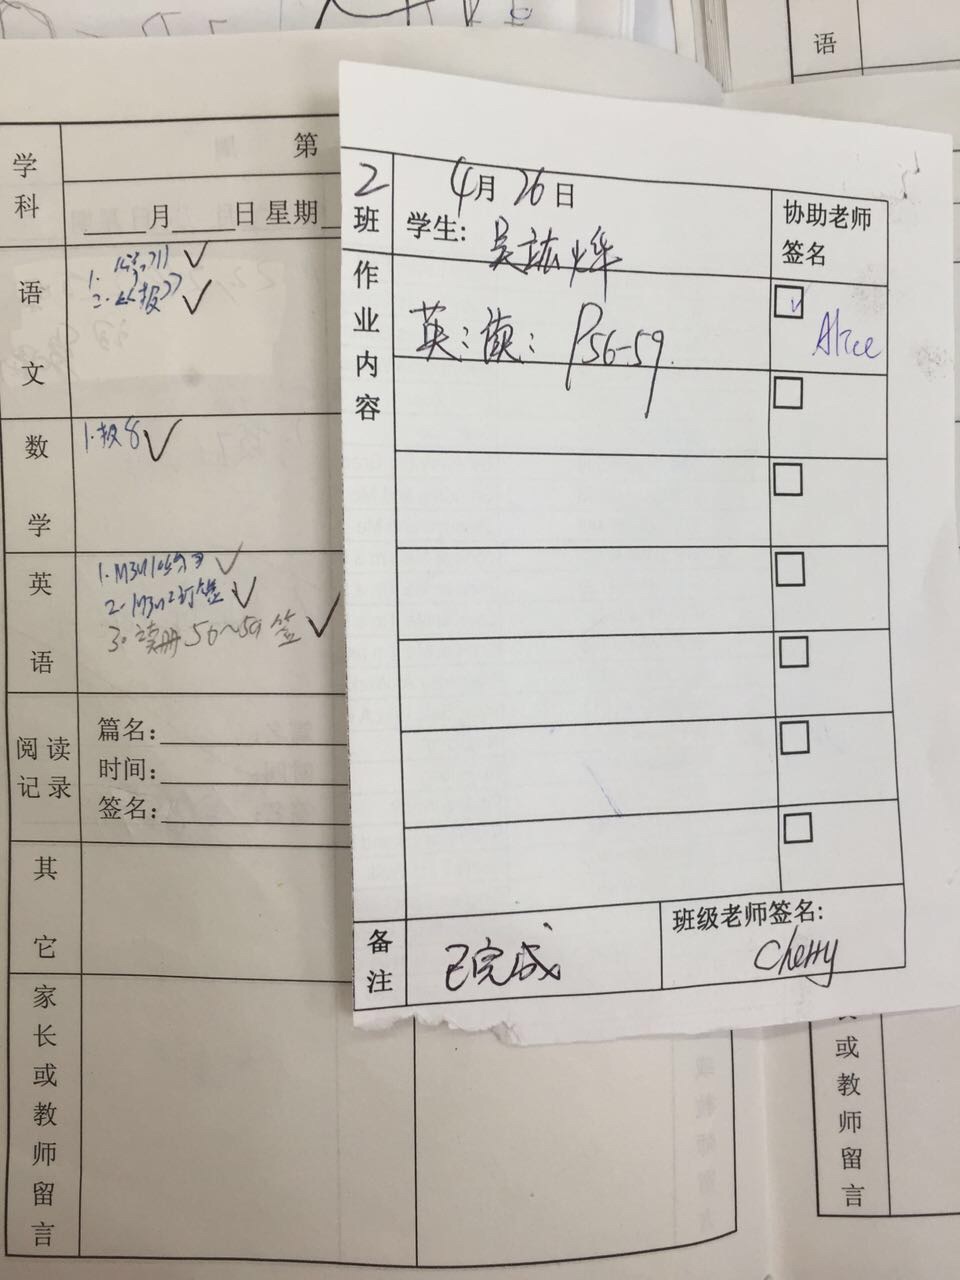 语
学科
第
___月___日 星期
语文
数学
1. 报8
英语
3. 读册 56~59 签
阅读记录
篇名:
时间:
签名:
其它
家长或教师留言
2班
4月26日
学生: 吴
协助老师签名
作业内容
英:读: P56-59.
Alice
备注
已完成
班级老师签名:
Cherry
或教师留言